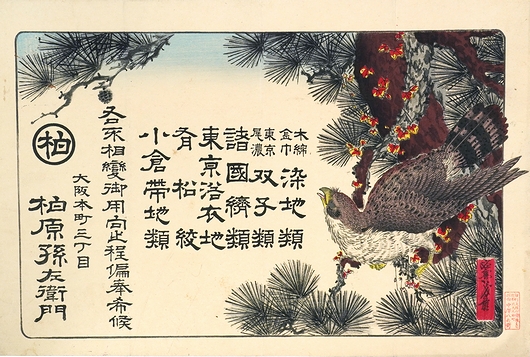 木綿
金巾
染地類
東京
尾濃
双子類
諸國縞類
東京浴衣地
有松絞
小倉帯地類
乄不相變御用向此程偏奉希候
柏
大阪本町三丁目
柏原孫左衛門